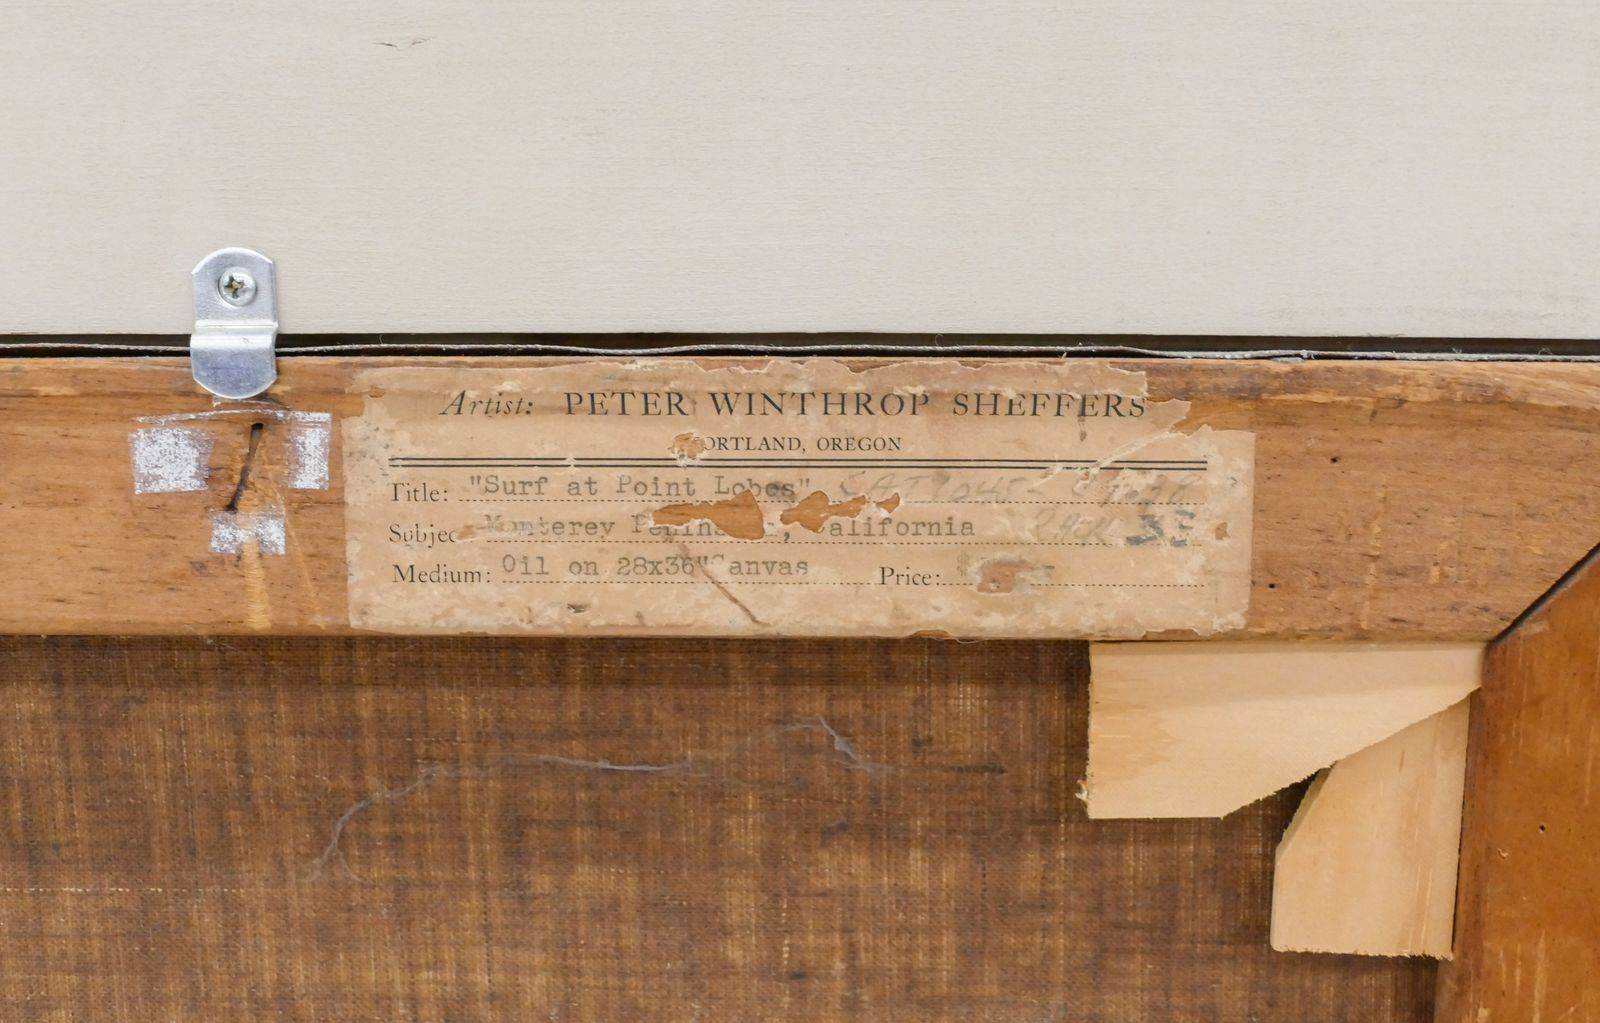 Artist: PETER WINTHROP SHEFFERS
ORTLAND, OREGON
Title: "Surf at Point Lobos"
Subjec Monterey Penins , alifornia
Medium: Oil on 28x36" anvas Price: $